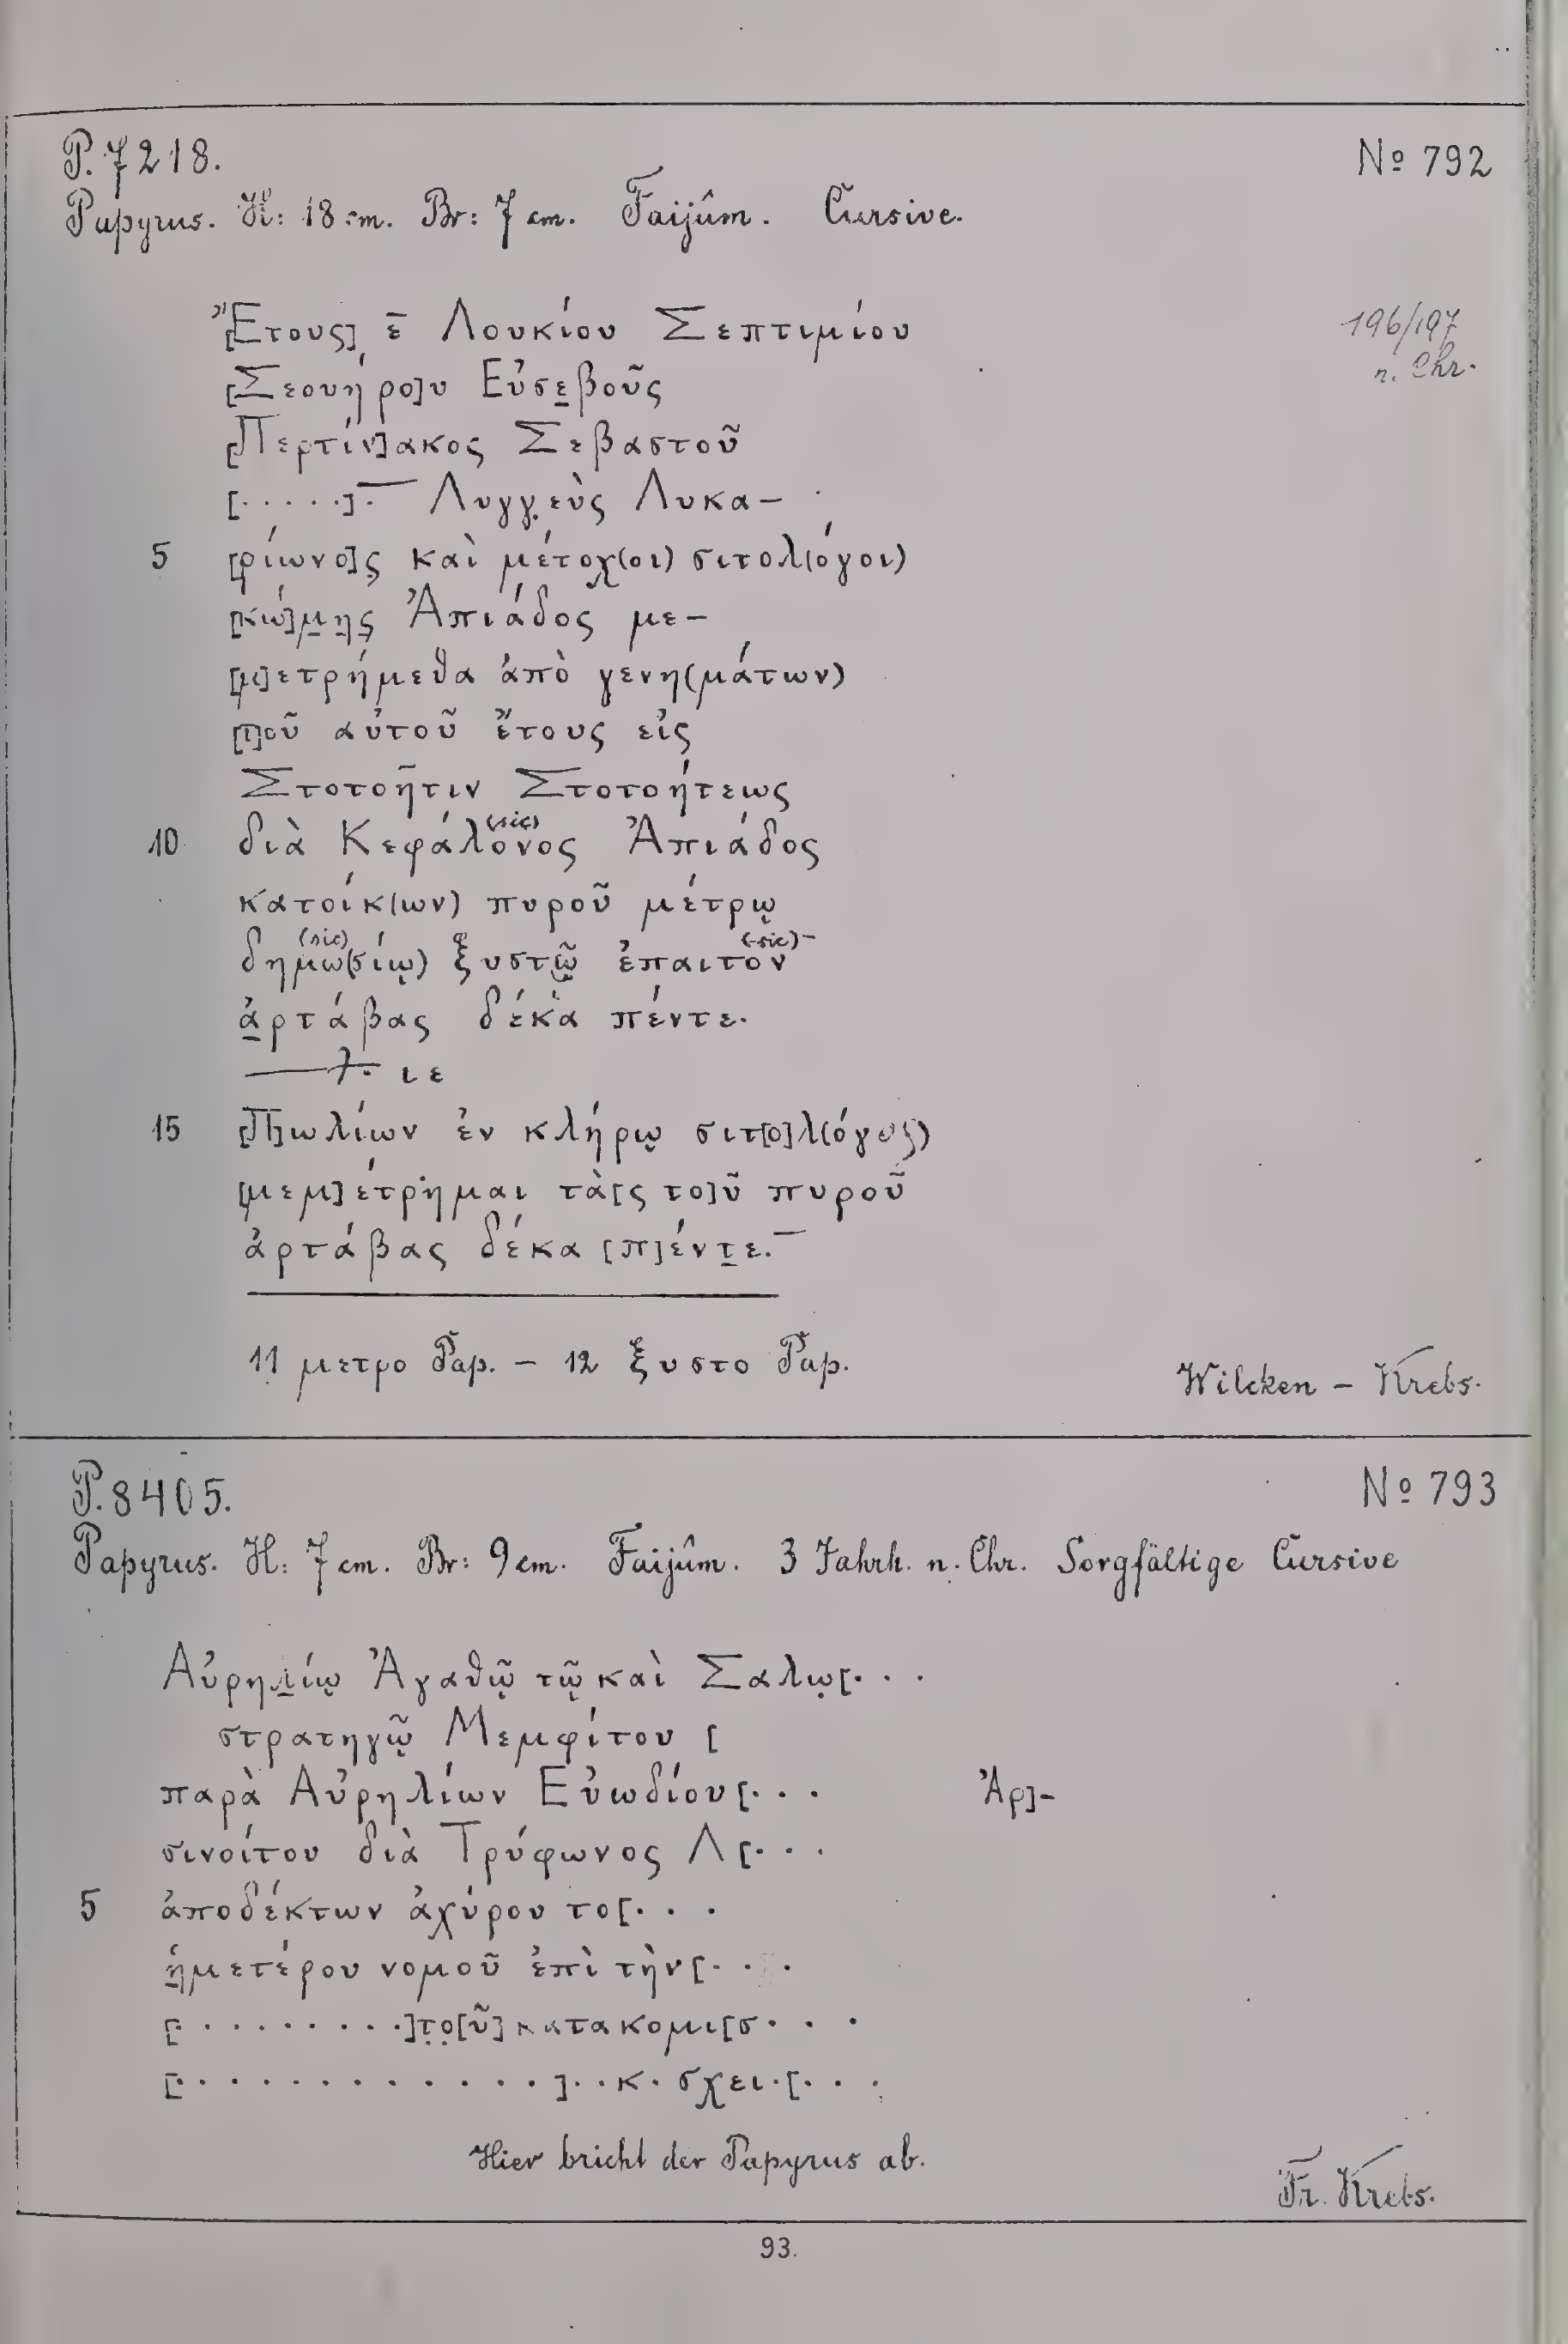 P. 7218. No 792
Papyrus. H: 18 cm. Br: 7 cm. Faijûm. Cursive.
[Ἔτους] ε̄ Λουκίου Σεπτιμίου 196/197
[Σεουήρο]υ Εὐσε̣βοῦς n. Chr.
[Περτίν]ακος Σεβαστοῦ
[·····]·— Λυγγ̣εὺς Λυκα-
5 [ρίωνο]ς̣ καὶ μέτοχ(οι) σιτολ(όγοι)
[κώ]μ̣η̣ς̣ Ἀπιάδος με-
[μ]ετρήμεθα ἀπὸ γενη(μάτων)
[τ]οῦ αὐτοῦ ἔτους εἰς
Στοτοῆτιν Στοτοήτεως
10 διὰ Κεφάλονος (sic) Ἀπιάδος
κατοίκ(ων) πυροῦ μέτρῳ
δημω(σίῳ) (sic) ξυστῷ ἐπαιτον (sic)
ἀ̣ρτάβας δέκα πέντε.
ιε
15 [Π]ωλίων ἐν κλήρῳ σιτ[ο]λ(όγος)
[μεμ]έτρημαι τὰ[ς το]ῦ πυροῦ
ἀρτάβας δέκα [π]έντ̣ε.—
11 μετρο Pap. – 12 ξυστο Pap.
Wilcken – Krebs.
P. 8405. No 793
Papyrus. H: 7 cm. Br: 9 cm. Faijûm. 3 Jahrh. n. Chr. Sorgfältige Cursive
Αὐρηλ̣ίῳ Ἀγαθῷ τῷ καὶ Σαλω̣[···
στρατηγῷ Μεμφίτου [
παρὰ Αὐρηλίων Εὐωδίου[··· Ἀρ]-
σινοίτου διὰ Τρύφωνος Λ[···
5 ἀποδέκτων ἀχύρου το[···
ἡ̣μετέρου νομοῦ ἐπὶ τὴν[···
[·········]τ̣ο̣[ῦ] κατακομι[σ···
[·············]··κ·σχει·[···
Hier bricht der Papyrus ab.
Fr. Krebs.
93.